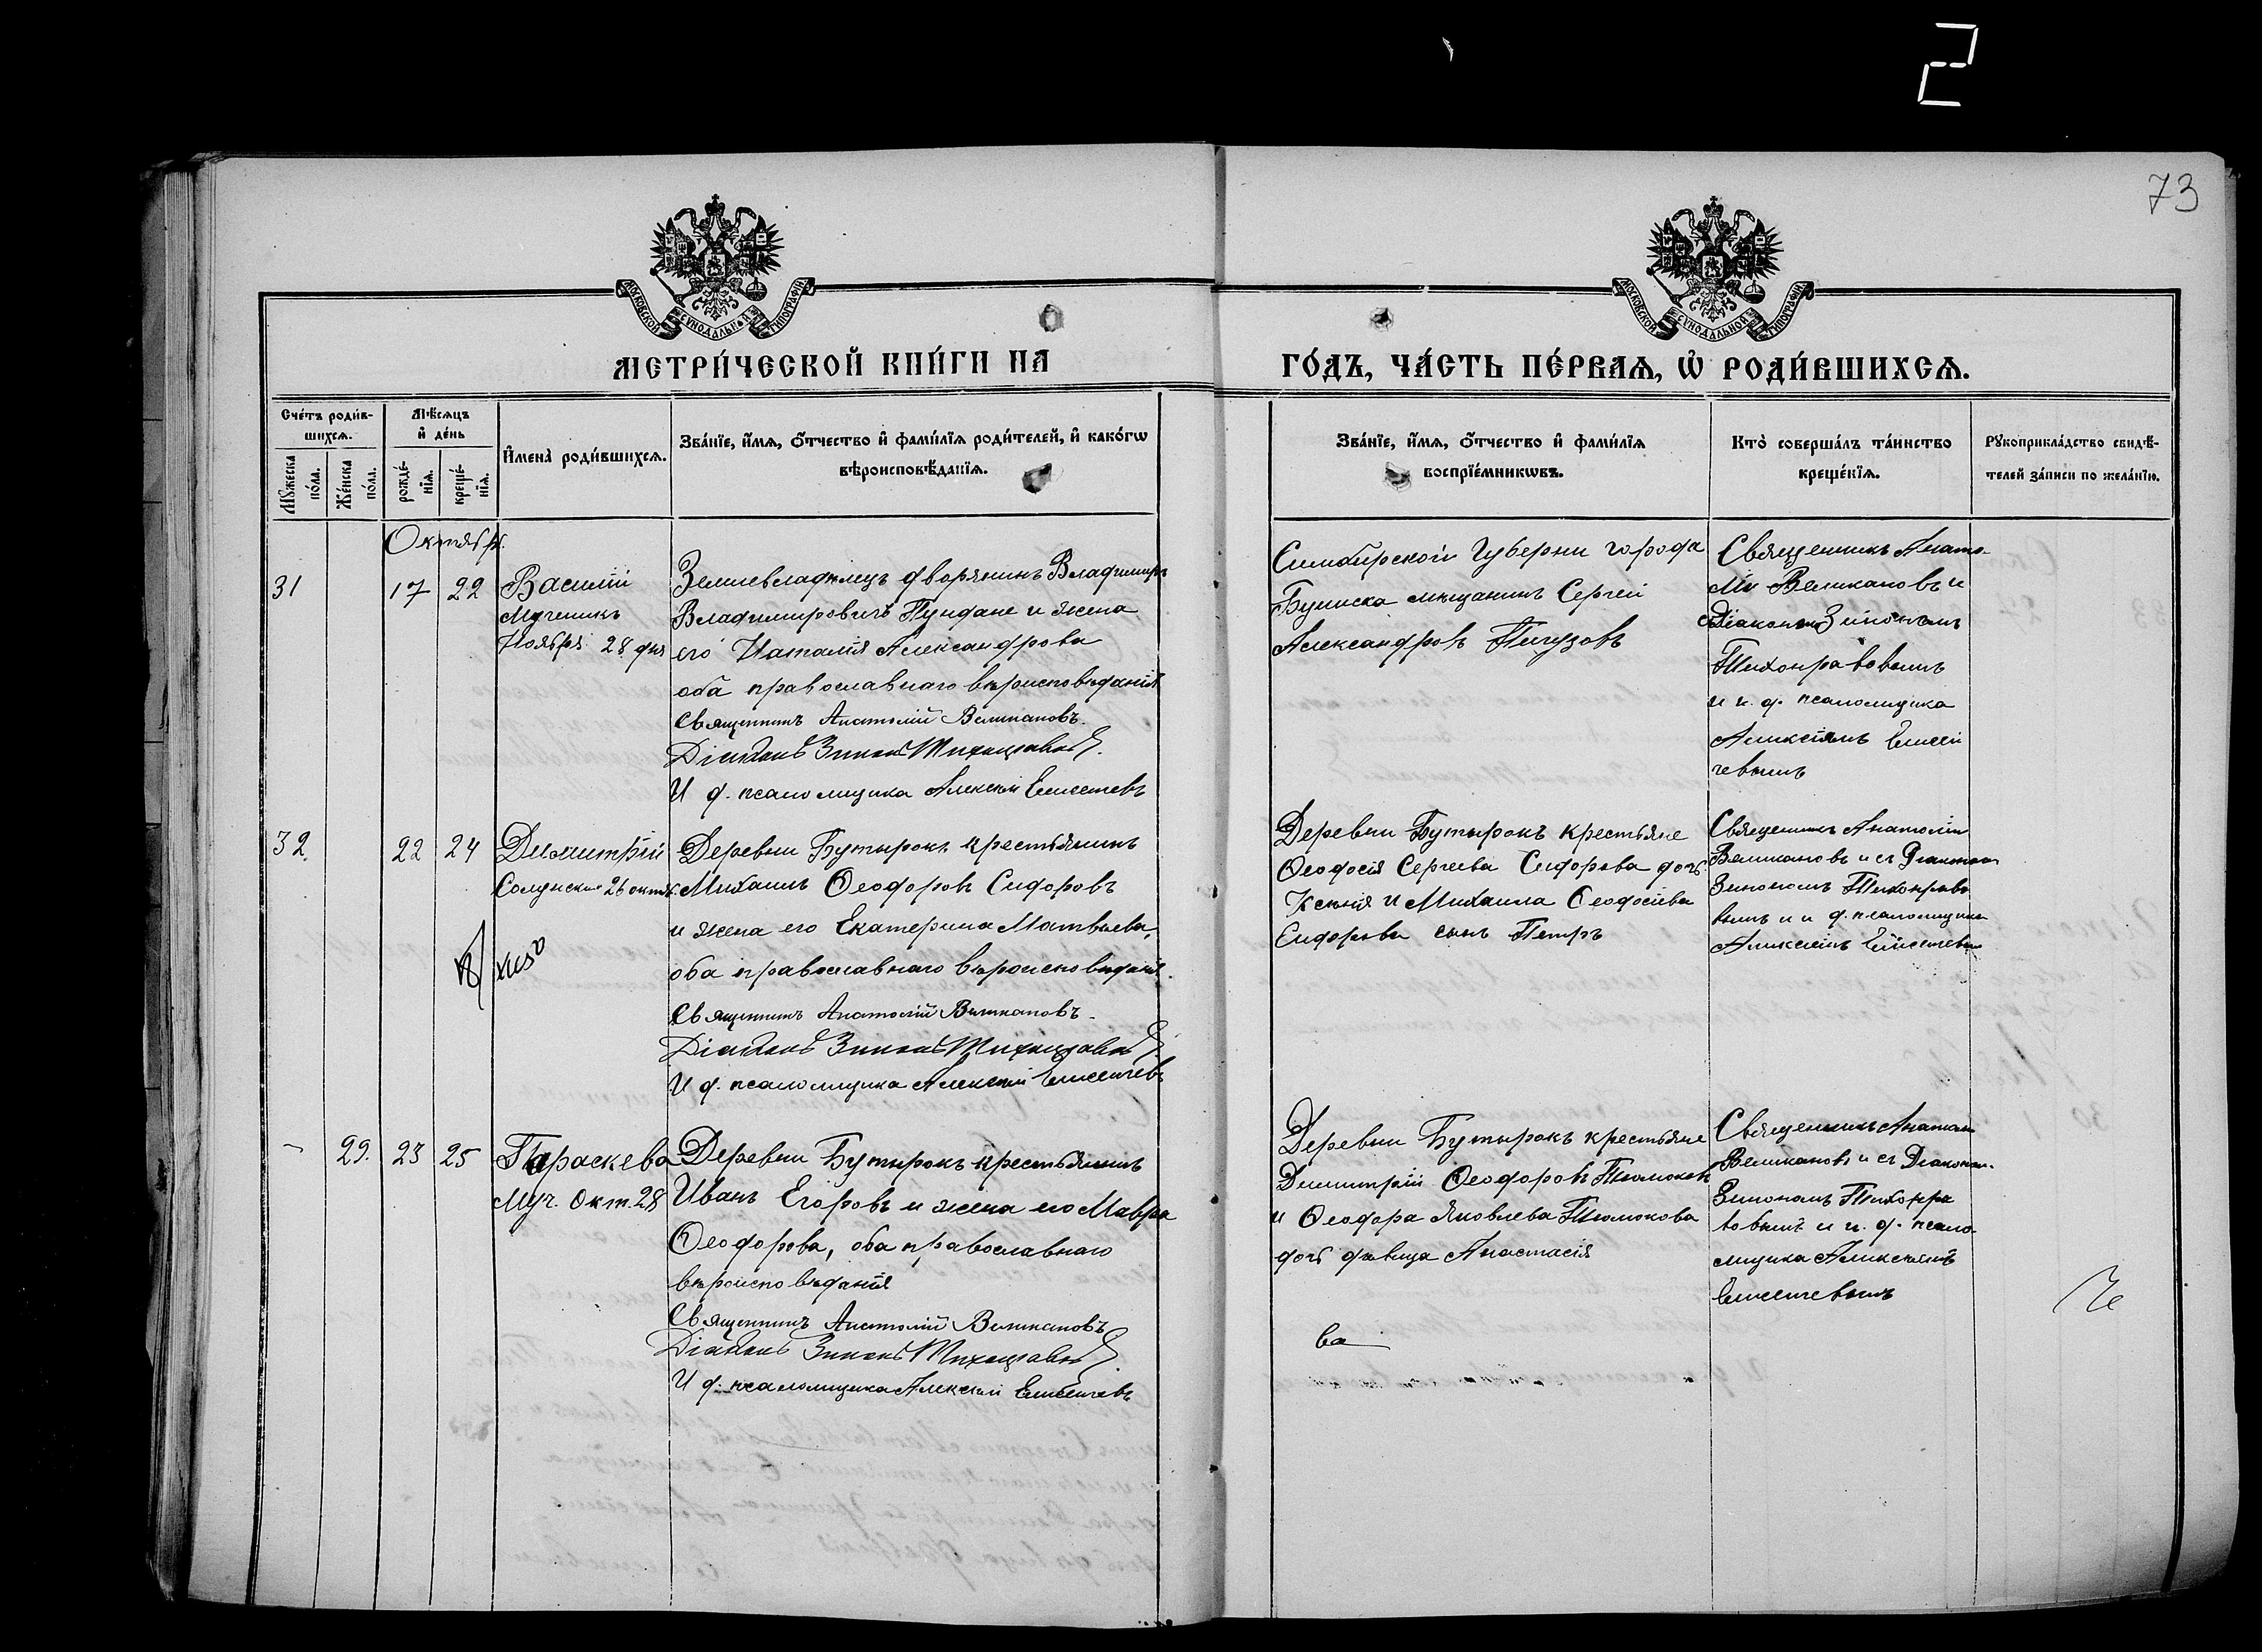 2
73
МОСКОВСКОЙ СѴНОДАЛЬНОЙ ТИПОГРАФІИ
МОСКОВСКОЙ СѴНОДАЛЬНОЙ ТИПОГРАФІИ
МЕТРИ́ЧЕСКОЙ КНИ́ГИ НА
ГО́ДЪ, ЧА́СТЬ ПЕ́РВАѦ, Ѡ РОДИ́ВШИХСѦ.
Сче́тъ роди́в-
шихсѧ.
Мѣ́сѧцъ
и҆ де́нь
Мꙋ́жеска по́ла.
Же́нска по́ла.
рожде́-
нїѧ.
креще́-
нїѧ.
И҆мена̀ роди́вшихсѧ.
Зва́нїе, и҆́мѧ, ѻ҆́тчество и҆ фами́лїѧ роди́телей, и҆ како́гѡ
вѣроисповѣ́данїѧ.
Зва́нїе, и҆́мѧ, ѻ҆́тчество и҆ фами́лїѧ
воспрїе́мникѡвъ.
Кто̀ соверша́лъ та́инство
креще́нїѧ.
Рꙋкоприкла́дство свидѣ́-
телей за́писи по жела́нїю.
Октябрь.
31
17
22
Василій
Мученикъ
Ноября 28 дня
Землевладѣлецъ дворянинъ Владиміръ
Владиміровичъ Пундане и жена
его Наталія Александрова
оба православнаго вѣроисповѣданія
Священникъ Анатолій Великановъ.
Діаконъ Зинонъ Тихонравовъ.
И д. псаломщика Алексѣй Елисеичевъ
Симбирской Губерни города
Буинска мѣщанинъ Сергѣй
Александровъ Пигузовъ
Священникъ Анато-
лій Великановъ и
Діаконъ Зинономъ
Тихонравовымъ
и и. д. псаломщика
Алексѣемъ Елисеи
чевымъ
32
22
24
Димитрій
Солунскій 26 октяб.
Деревни Бутырокъ крестьянинъ
Михаилъ Ѳеодоровъ Сидоровъ
и жена его Екатерина Матвѣева,
оба православнаго вѣроисповѣданія.
Священникъ Анатолій Великановъ.
Діаконъ Зинонъ Тихонравовъ.
И д. псаломщика Алексѣй Елисеичевъ
Деревни Бутырокъ крестьяне
Ѳеодосія Сергѣева Сидорова дочь
Ксенія и Михаила Ѳеодосіева
Сидорова сынъ Петръ
Священникъ Анатолій
Великановъ и съ Діакономъ
Зинономъ Тихонраво
вымъ и и д. псаломщика
Алексѣемъ Елисеичевым
29.
23
25
Параскева
Муч. Окт. 28
Деревни Бутырокъ крестьянинъ
Иванъ Егоровъ и жена его Мавра
Ѳеодорова, оба православнаго
вѣроисповѣданія
Священникъ Анатолій Великановъ
Діаконъ Зинонъ Тихонравовъ.
И д. псаломщика Алексѣй Елисеичевъ
Деревни Бутырокъ крестьяне
Димитрій Ѳеодоровъ
и Ѳеодора Яковлева
дочь дѣвица Анастасія
ва
Священникъ Анатолій
Великановъ и съ Діаконом.
Зинономъ Тихонра
вовымъ и и. д. псало
мщика Алексѣемъ
Елисеичевымъ